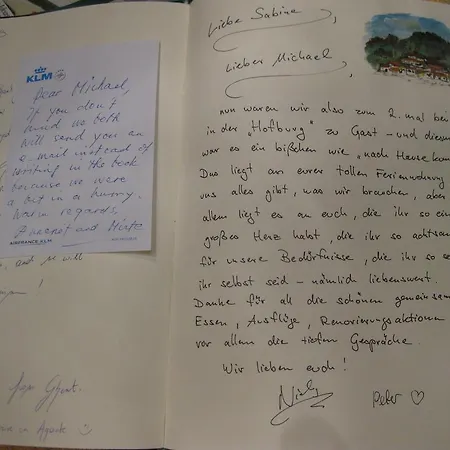 KLM
Dear Michael,
if you don't
mind we both
will send you an
e-mail instead of
writing in the book
because we were
a bit in a hurry.
Warm regards,
and
AIRFRANCE KLM
and we will
!
Liebe Sabine,
Lieber Michael,
nun waren wir also zum 2. mal bei
in der „Hofburg" zu Gast – und diesm
war es ein bißchen wie „nach Hause kom
Das liegt an euren tollen Ferienwohnung
uns alles gibt, was wir brauchen, aber
allem liegt es an euch, die ihr so ein
großes Herz habt, die ihr so achtsam
für unsere Bedürfnisse, die ihr so se
ihr selbst seid – nämlich liebenswert.
Danke für all die schönen gemeinsam
Essen, Ausflüge, Renovierungsaktionen
vor allem die tiefen Gespräche.
Wir lieben euch!
Peter ♡